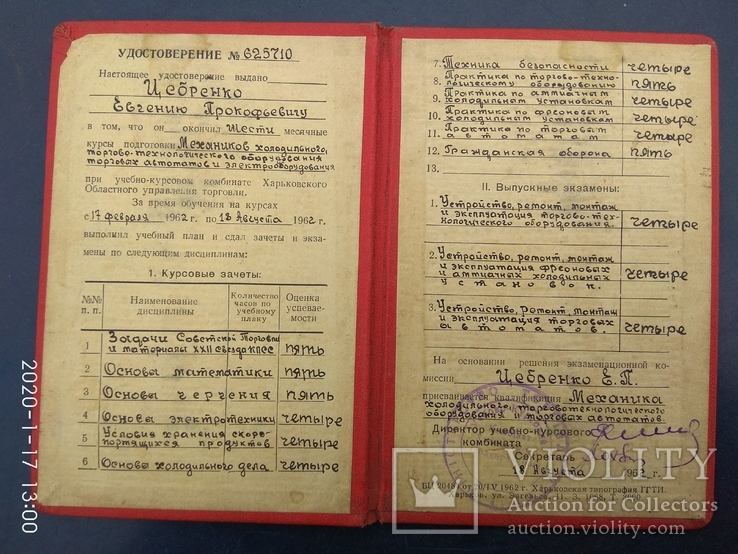 УДОСТОВЕРЕНИЕ № 625710
Настоящее удостоверение выдано
Цебренко
Евгению Прокофьевичу
в том, что он окончил шести месячные
курсы подготовки Механиков холодильного,
торгово-технологического оборудования
торговых автоматов и электрооборудования
при учебно-курсовом комбинате Харьковского
Областного управления торговли.
За время обучения на курсах
с 17 февраля 1962 г. по 18 Августа 1962 г.
выполнил учебный план и сдал зачеты и экза-
мены по следующим дисциплинам:
1. Курсовые зачеты:
№№ п. п. Наименование дисциплины Количество часов по учебному плану Оценка успевае-мости
1 Задачи Советской Торговли
и материалы XXII съезда КПСС пять
2 Основы математики пять
3 Основы черчения пять
4 Основы электротехники четыре
5 Условия хранения скоро-
портящихся продуктов четыре
6 Основы холодильного дела четыре
7. Техника безопасности четыре
8. Практика по торгово-техно-
логическому оборудованию пять
9. Практика по аммиачным
холодильным установкам четыре
10. Практика по фреоновым
холодильным установкам четыре
11. Практика по торговым
автоматам четыре
12. Гражданская оборона пять
13.
II. Выпускные экзамены:
1. Устройство, ремонт, монтаж
и эксплуатация торгово-тех-
нологического оборудования. четыре
2. Устройство, ремонт, монтаж
и эксплуатация фреоновых
и аммиачных холодильных
установок. четыре
3. Устройство, ремонт, монтаж
и эксплуатация торговых
автоматов. четыре
На основании решения экзаменационной ко-
миссии Цебренко Е.П.
присваивается квалификация Механика
холодильного, торговотехнологического
оборудования и торговых автоматов.
Директор учебно-курсового
комбината
Секретарь
18 Августа 1962 г.
1962 г. Харьковская типография
Харьков, ул. Энгельса, 11.
2020-1-17 13:00
VIOLITY
Auction for Collectors
auction.violity.com